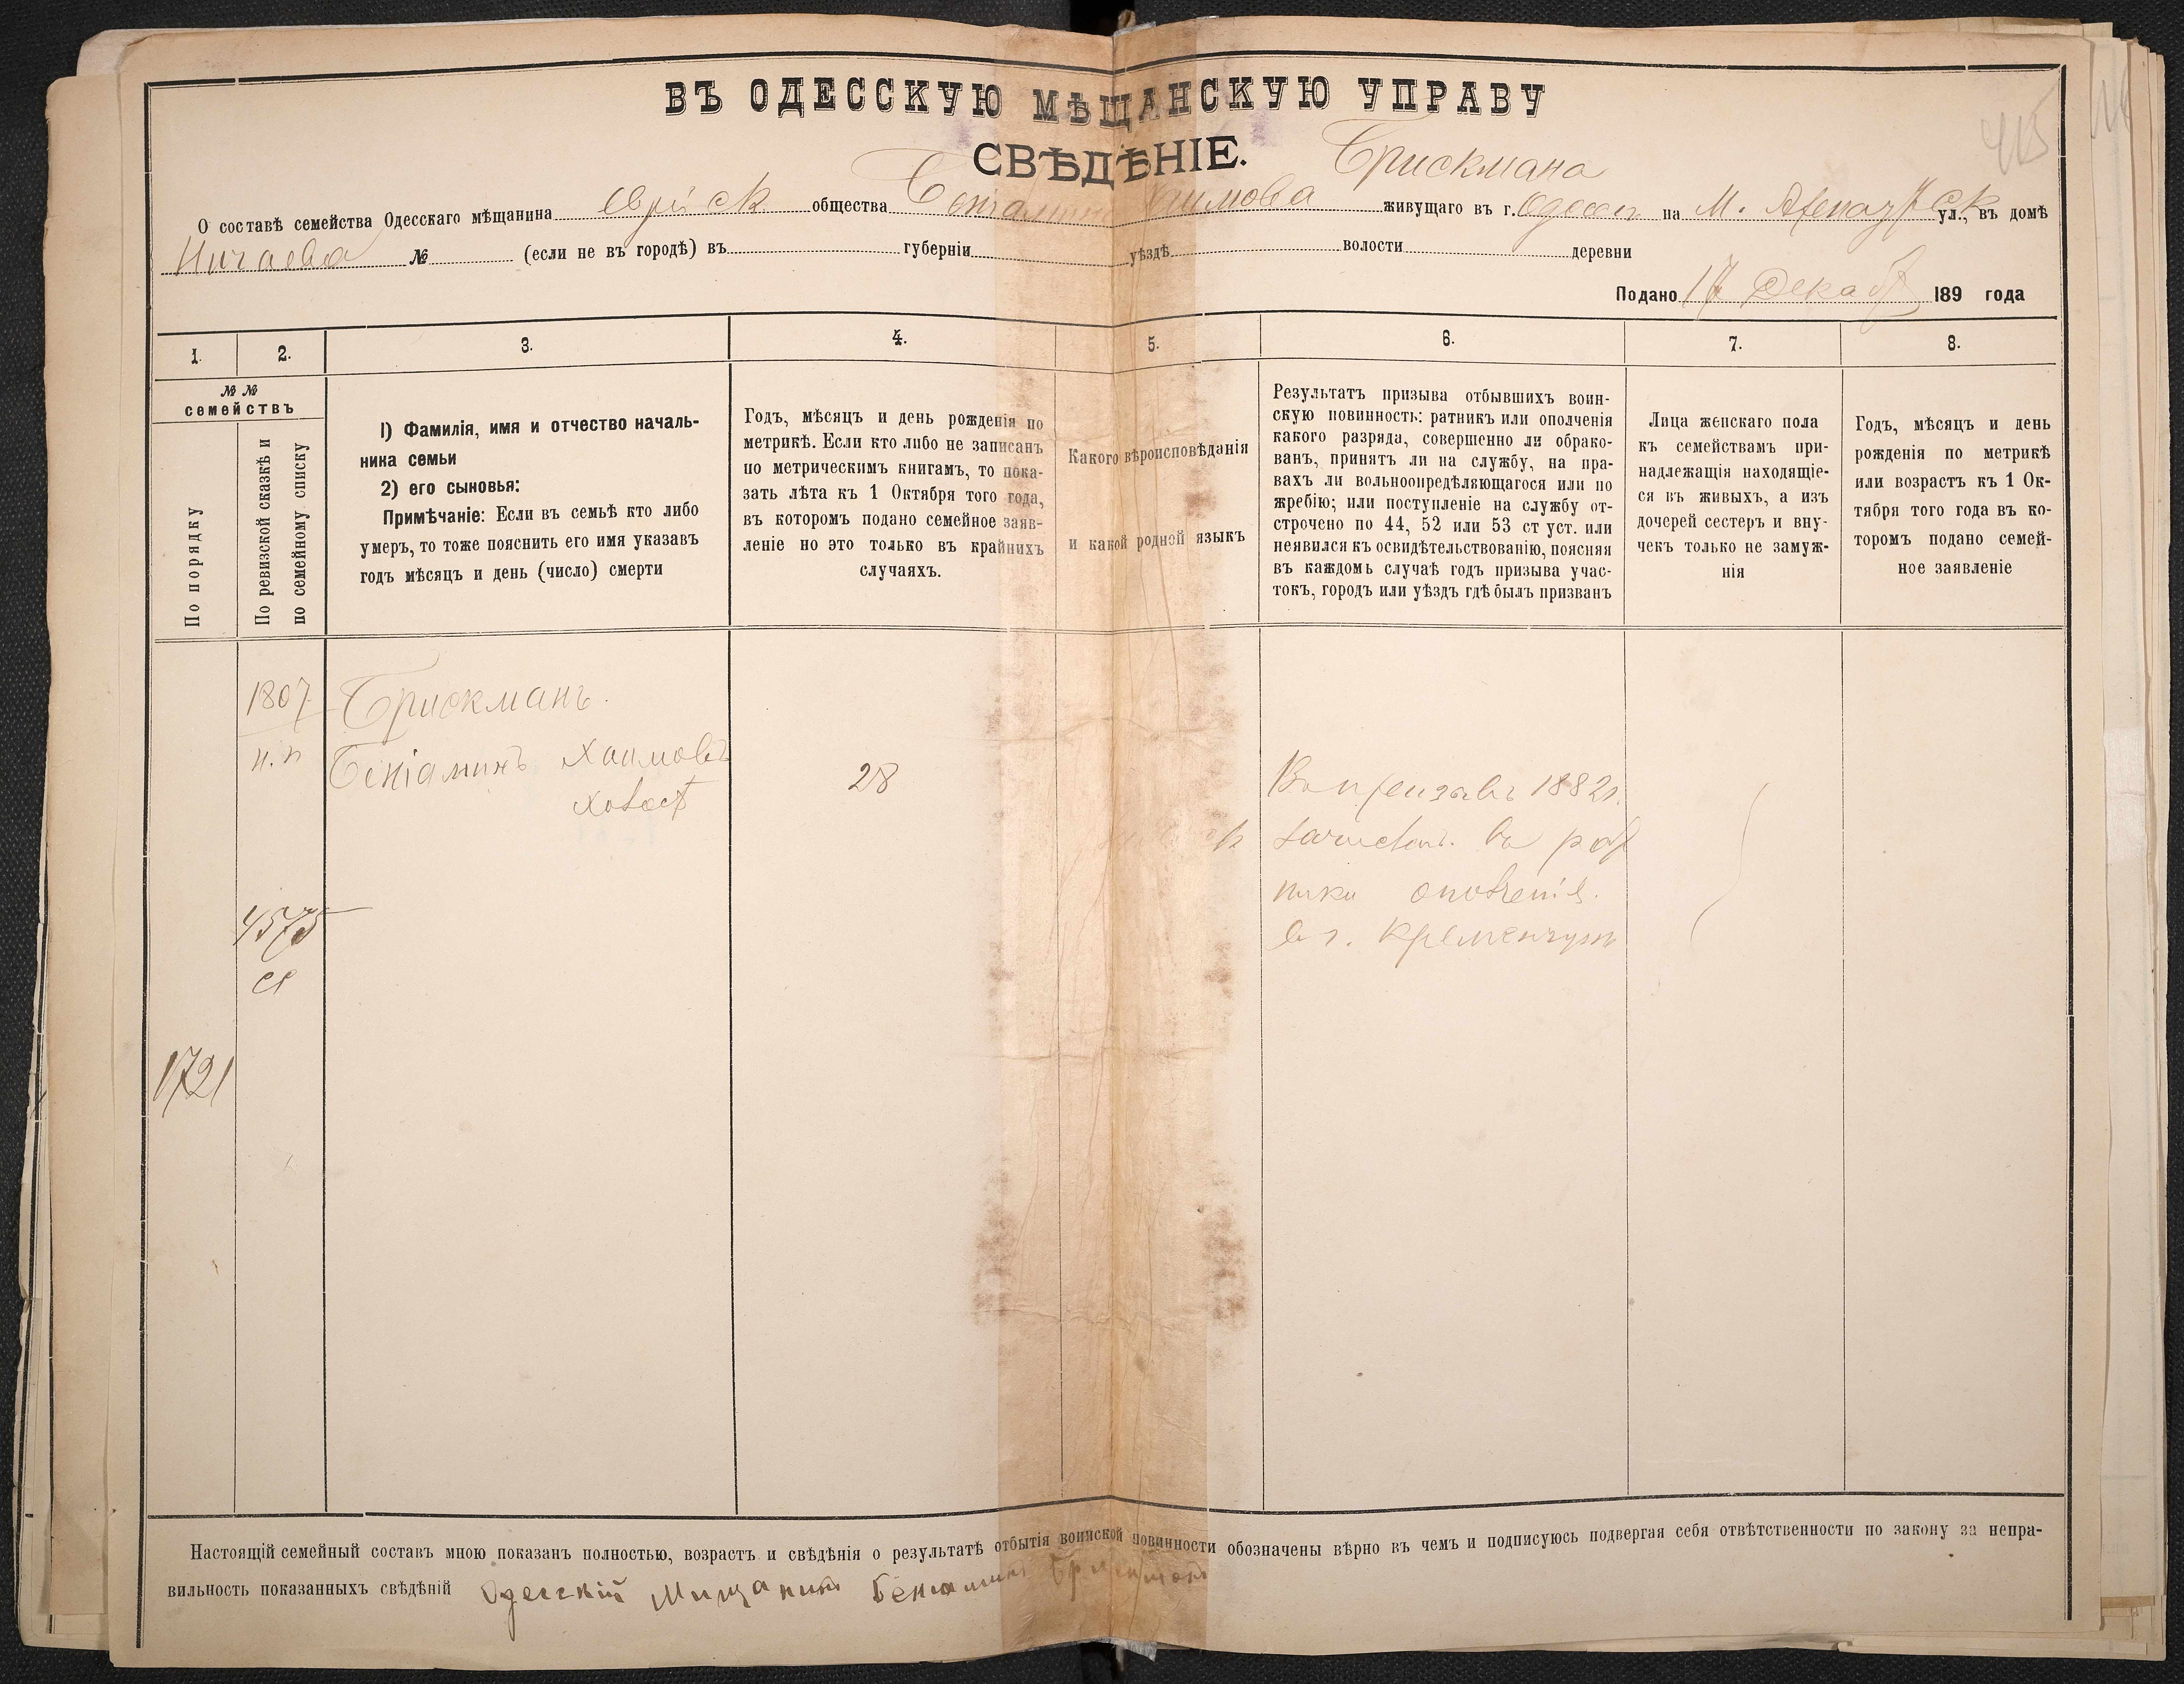 ВЪ ОДЕССКУЮ МѢЩАНСКУЮ УПРАВУ
СВѢДѢНІЕ.
415
Брискмана
О составѣ семейства Одесскаго мѣщанина еврейск общества Беніамина Хаимова живущаго въ г. Одессѣ на М. Арнаутск ул., въ домѣ
Ничаева № (если не въ городѣ) въ губерніи уѣздѣ волости деревни
Подано 17 Декабр 189 года
1. 2. 3. 4. 5. 6. 7. 8.
№ №
семействъ
По порядку
По ревизской сказкѣ и
по семейному списку
1) Фамилія, имя и отчество началь-
ника семьи
2) его сыновья:
Примѣчаніе: Если въ семьѣ кто либо
умеръ, то тоже пояснить его имя указавъ
годъ мѣсяцъ и день (число) смерти
Годъ, мѣсяцъ и день рожденія по
метрикѣ. Если кто либо не записанъ
по метрическимъ книгамъ, то пока-
зать лѣта къ 1 Октября того года,
въ которомъ подано семейное заяв-
леніе но это только въ крайнихъ
случаяхъ.
Какого вѣроисповѣданія
и какой родной языкъ
Результатъ призыва отбывшихъ воин-
скую повинность: ратникъ или ополченія
какого разряда, совершенно ли обрако-
ванъ, принятъ ли на службу, на пра-
вахъ ли вольноопредѣляющагося или по
жребію; или поступленіе на службу от-
строчено по 44, 52 или 53 ст уст. или
неявился къ освидѣтельствованію, поясняя
въ каждомъ случаѣ годъ призыва учас-
токъ, городъ или уѣздъ гдѣ былъ призванъ
Лица женскаго пола
къ семействамъ при-
надлежащія находящіе-
ся въ живыхъ, а изъ
дочерей сестеръ и вну-
чекъ только не замуж-
нія
Годъ, мѣсяцъ и день
рожденія по метрикѣ
или возрастъ къ 1 Ок-
тября того года въ ко-
торомъ подано семей-
ное заявленіе
1807
н. п
4575
1721
Брискманъ.
Беніаминъ Хаимовъ
холост
28
Въ призывъ 1882 г.
зачислен. въ рат
ники ополченія.
в г. Кременчугѣ
Настоящій семейный составъ мною показанъ полностью, возрастъ и свѣдѣнія о результатѣ отбытія воинской повинности обозначены вѣрно въ чемъ и подписуюсь подвергая себя отвѣтственности по закону за непра-
вильность показанныхъ свѣдѣній Одесскій Мищанинъ Беніаминъ Брискманъ